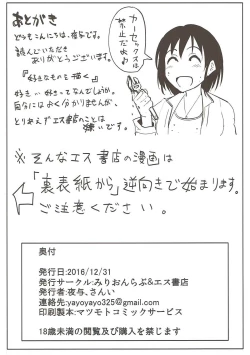 あとがき
どうもこんにちは、夜与です。
読んでいただき
ありがとうございます。
『好きなものを描く』
好き
自分にはよく分かりませんが、
とりあえずエス書店のことは
嫌いです。
カーセックスは
禁止だよ
※そんなエス書店の漫画は
「裏表紙から」逆向きで始まります。
ご注意ください。
奥付
発行日:2016/12/31
発行サークル:みりおんらぶ&エス書店
発行者:夜与、さんい
連絡先:yayoyayo325@gmail.com
印刷製本:マツモトコミックサービス
18歳未満の閲覧及び購入を禁じます